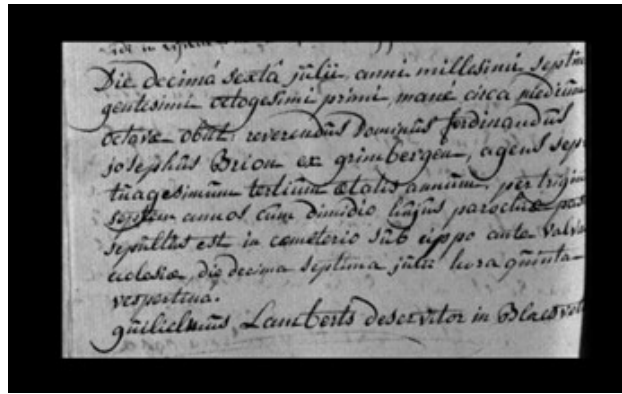 Die decimâ sextâ julii, anni millesimi septin
gentesimi octogesimi primi, mane circa mediam
octavæ obiit reverendus Dominus ferdinandus
josephus Brion ex grimbergen, agens sep
tuagesimum tertium ætatis annum, per triginta
septem annos cum dimidio hujus parochiæ pas
sepultus est in cœmeterio sub cippo ante valvas
ecclesiæ, die decima septima julii hora quinta
vespertina.
guilielmus Lamberts deservitor in Blaesvelt